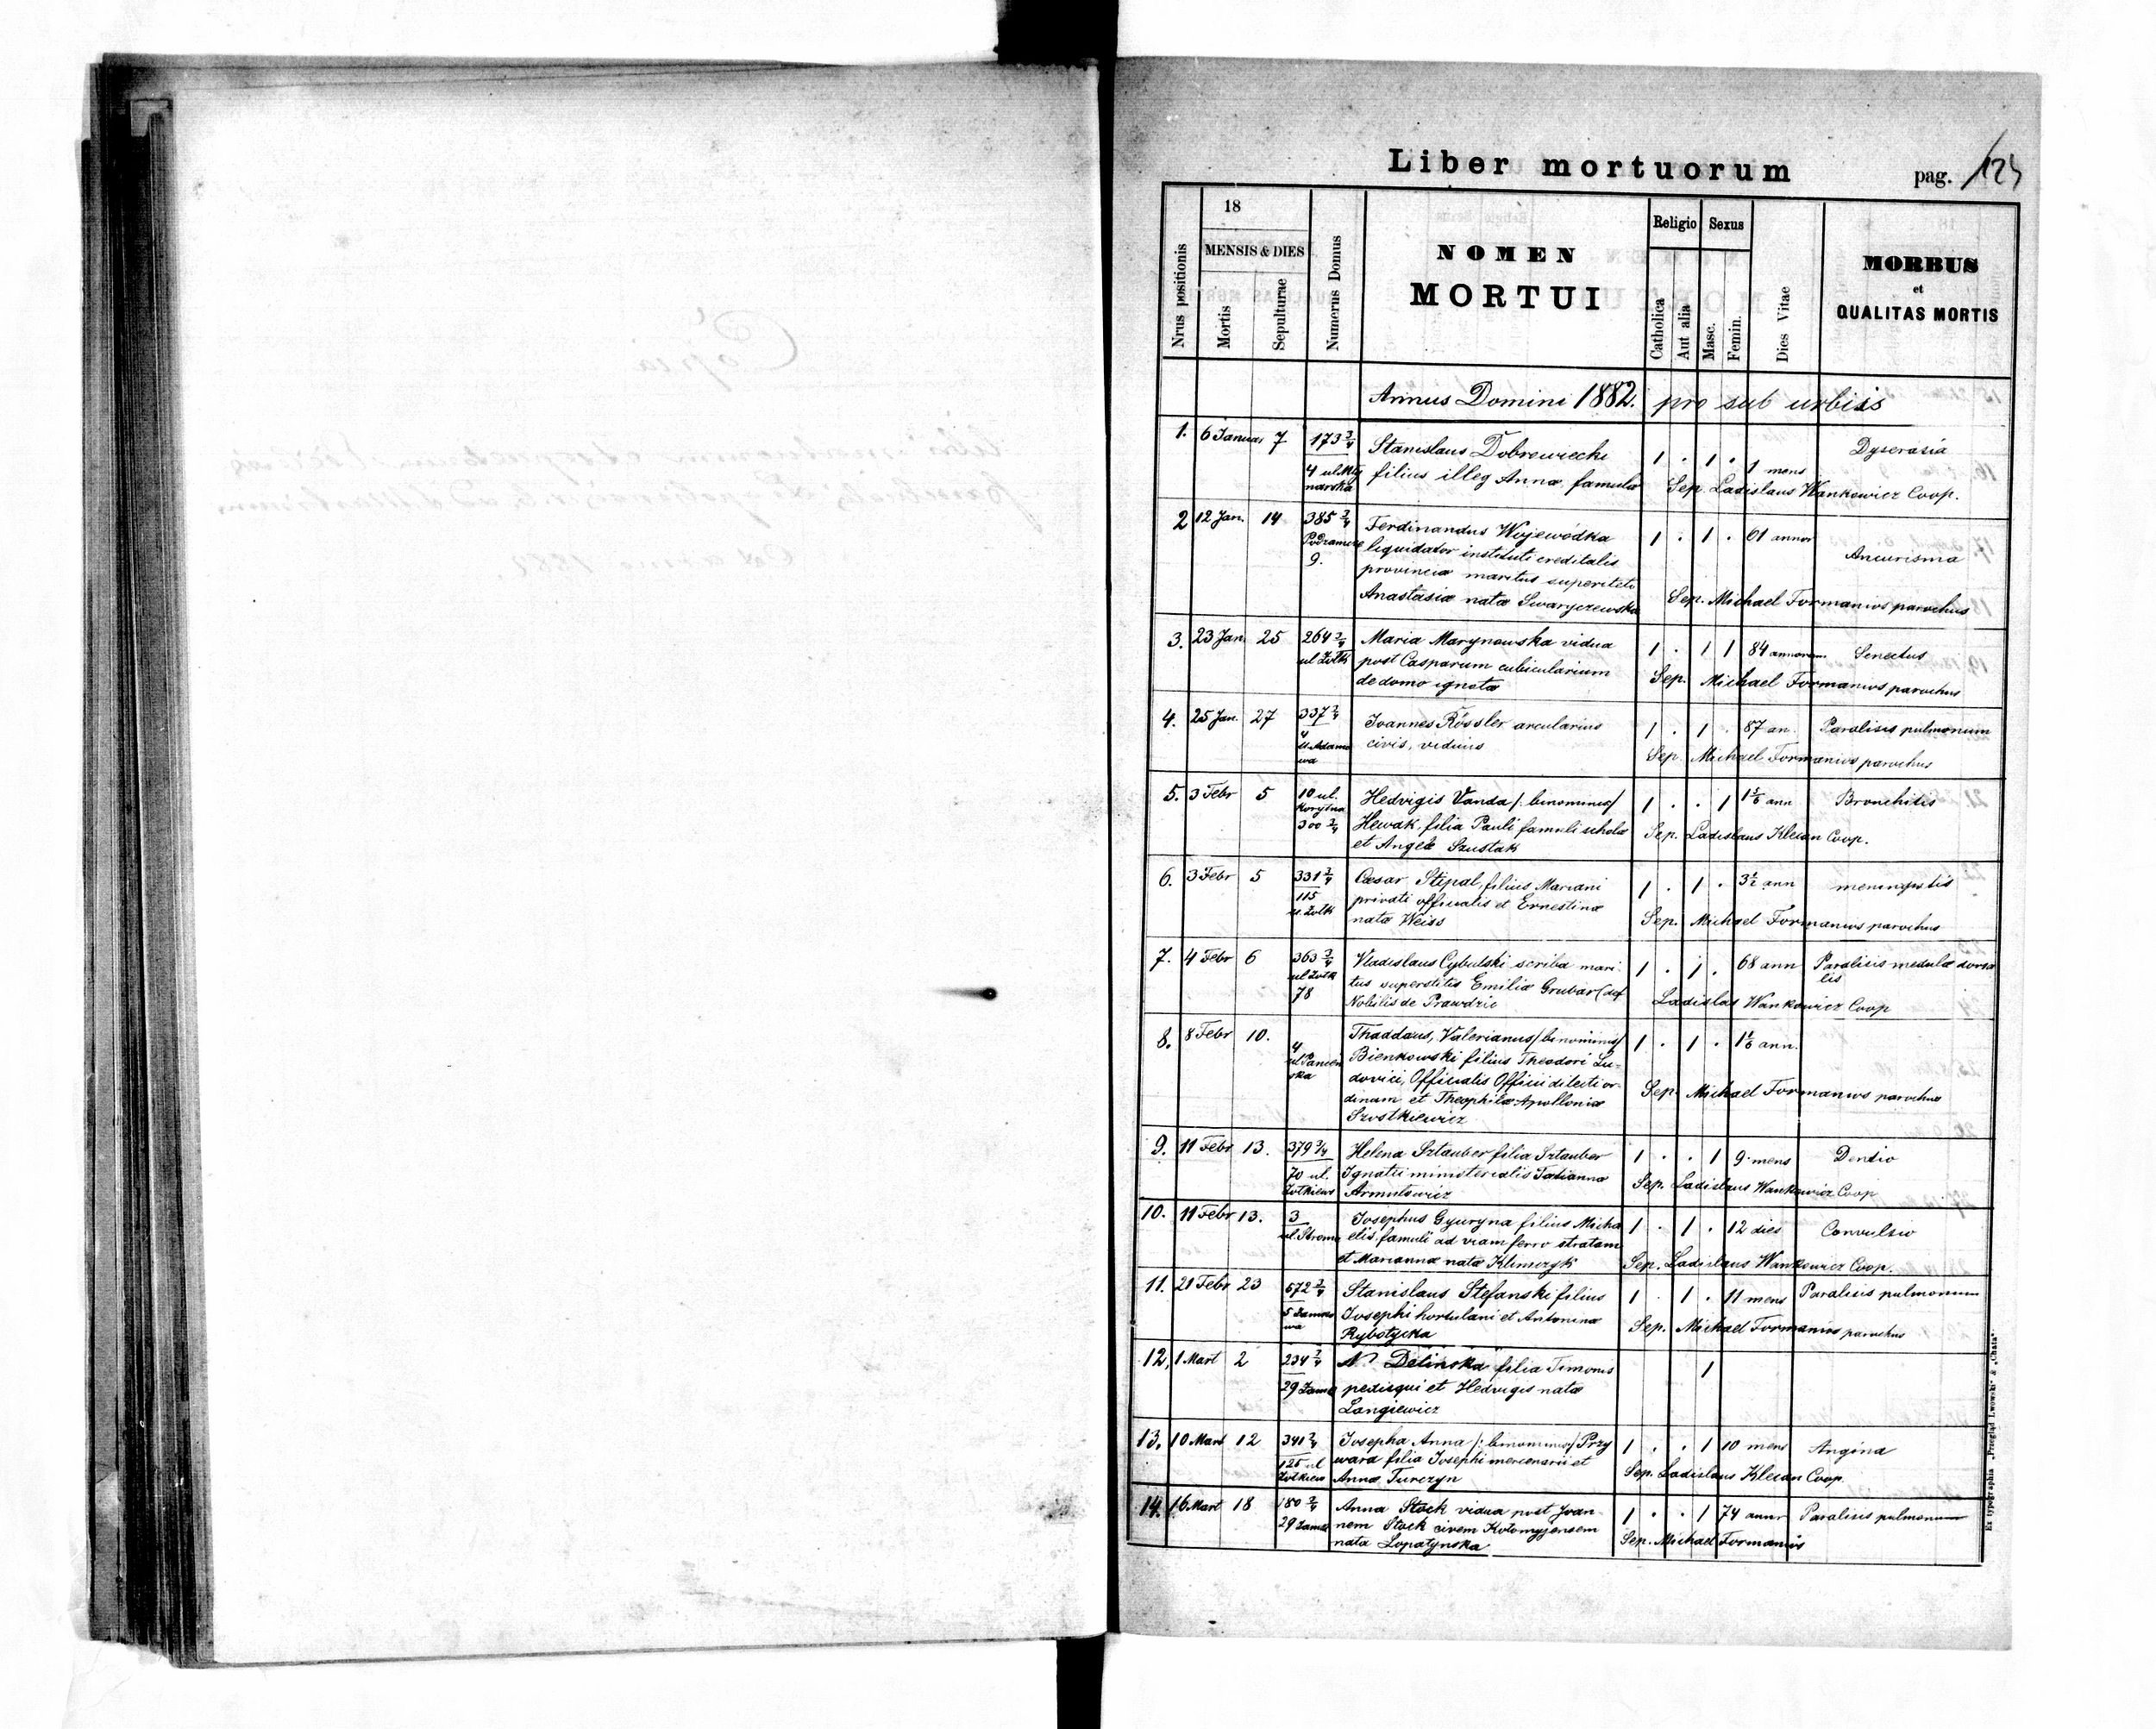 Liber mortuorum
pag. 124
Nrus positionis
18
MENSIS & DIES
Mortis
Sepulturae
Numerus Domus
NOMEN
MORTUI
Religio
Catholica
Aut alia
Sexus
Masc.
Femin.
Dies Vitae
MORBUS
et
QUALITAS MORTIS
Annus Domini 1882. pro sub urbiis
1. 6 Januar 7 173 3/4 Stanislaus Dobrowiecki 1 . 1 . 1 mens Dyscrasia
4 ul Mly filius illeg Annæ famulæ Sep. Ladislaus Wankowicz Coop.
narska
2 12 Jan. 14 385 3/4 Ferdinandus Wojewódka 1 . 1 . 61 annor Aneurisma
Podzamcze liquidator instituti creditalis
9. provinciæ maritus superstitis
Anastasiæ natæ Swaryczewska Sep. Michael Formanios parochus
3. 23 Jan. 25 264 3/4 Maria Marynowska vidua 1 . 1 1 84 annorum Senectus
ul Zolk post Casparum cubicularium Sep. Michael Formanios parochus
de domo ignota
4. 25 Jan. 27 337 3/4 Joannes Rössler arcularius 1 . 1 . 87 an. Paralisis pulmonum
4 civis, viduus Sep. Michael Formanios parochus
ul. Adamo
wa
5. 3 Febr 5 10 ul. Hedvigis Vanda /: binominis/ 1 . . 1 ann Bronchitis
Korytna Hewak, filia Pauli famuli scholæ Sep. Ladislaus Klecan Coop.
300 3/4 et Angelæ Szustak
6. 3 Febr 5 331 3/4 Cæsar Stipal, filius Mariani 1 . 1 . 3 1/2 ann meningitis
115 privati officialis et Ernestinæ Sep. Michael Formanios parochus
u. Zolk natæ Weiss
7. 4 Febr 6 363 3/4 Vladislaus Cybulski scriba mari 1 . 1 . 68 ann Paralisis medulæ dorsa
ul Zolk tus superstitis Emiliæ Grubar lis
78 Nobilis de Prawdzic Ladislas Wankowicz Coop
8. 8 Febr 10. 4 Thaddæus, Valerianus /binominis/ 1 . 1 . ann.
ul Panień Bienkowski filius Theodori Lu-
ska dovici, Officialis Officii or-
dinum et Theophilæ Apolloniæ Sep. Michael Formanios parochus
Szostkiewicz
9. 11 Febr 13. 379 3/4 Helena Sztauber filia Sztauber 1 . . 1 9 mens Dentio
70 ul. Ignatii ministerialis Tatiannæ Sep. Ladislaus Wankowicz Coop
Zolkiew Armutowicz
10. 11 Febr 13. 3 Josephus Gyuryna filius Micha 1 . 1 . 12 dies Convulsio
ul. Stroma elis, famuli ad viam ferro stratam
et Mariannæ natæ Klimczyk Sep. Ladislaus Wankowicz Coop.
11. 21 Febr 23 572 3/4 Stanislaus Stefanski filius 1 . 1 . 11 mens Paralisis pulmonum
5 Zamko Josephi hortulani et Antoninæ Sep. Michael Formanios parochus
wa Rybotycka
12, 1 Mart 2 234 3/4 N Delinska filia Simonis 1
29 Zamk pedisqui et Hedvigis natæ
Langiewicz
13. 10 Mart 12 341 3/4 Josepha Anna /: binominis/ Przy 1 . . 1 10 mens Angina
125 ul wara filia Josephi mercenarii et Sep. Ladislaus Klecan Coop.
Zolkiew Annæ Turczyn
14. 16 Mart 18 180 3/4 Anna Stock vidua post Joan- 1 . . 1 74 annr Paralisis pulmonum
29 Zamk nem Stock civem Kolomyjensem Sep. Michael Formanios
nata Lopatynska
Ex typographia „Przegląd Lwowski" & „Chata".